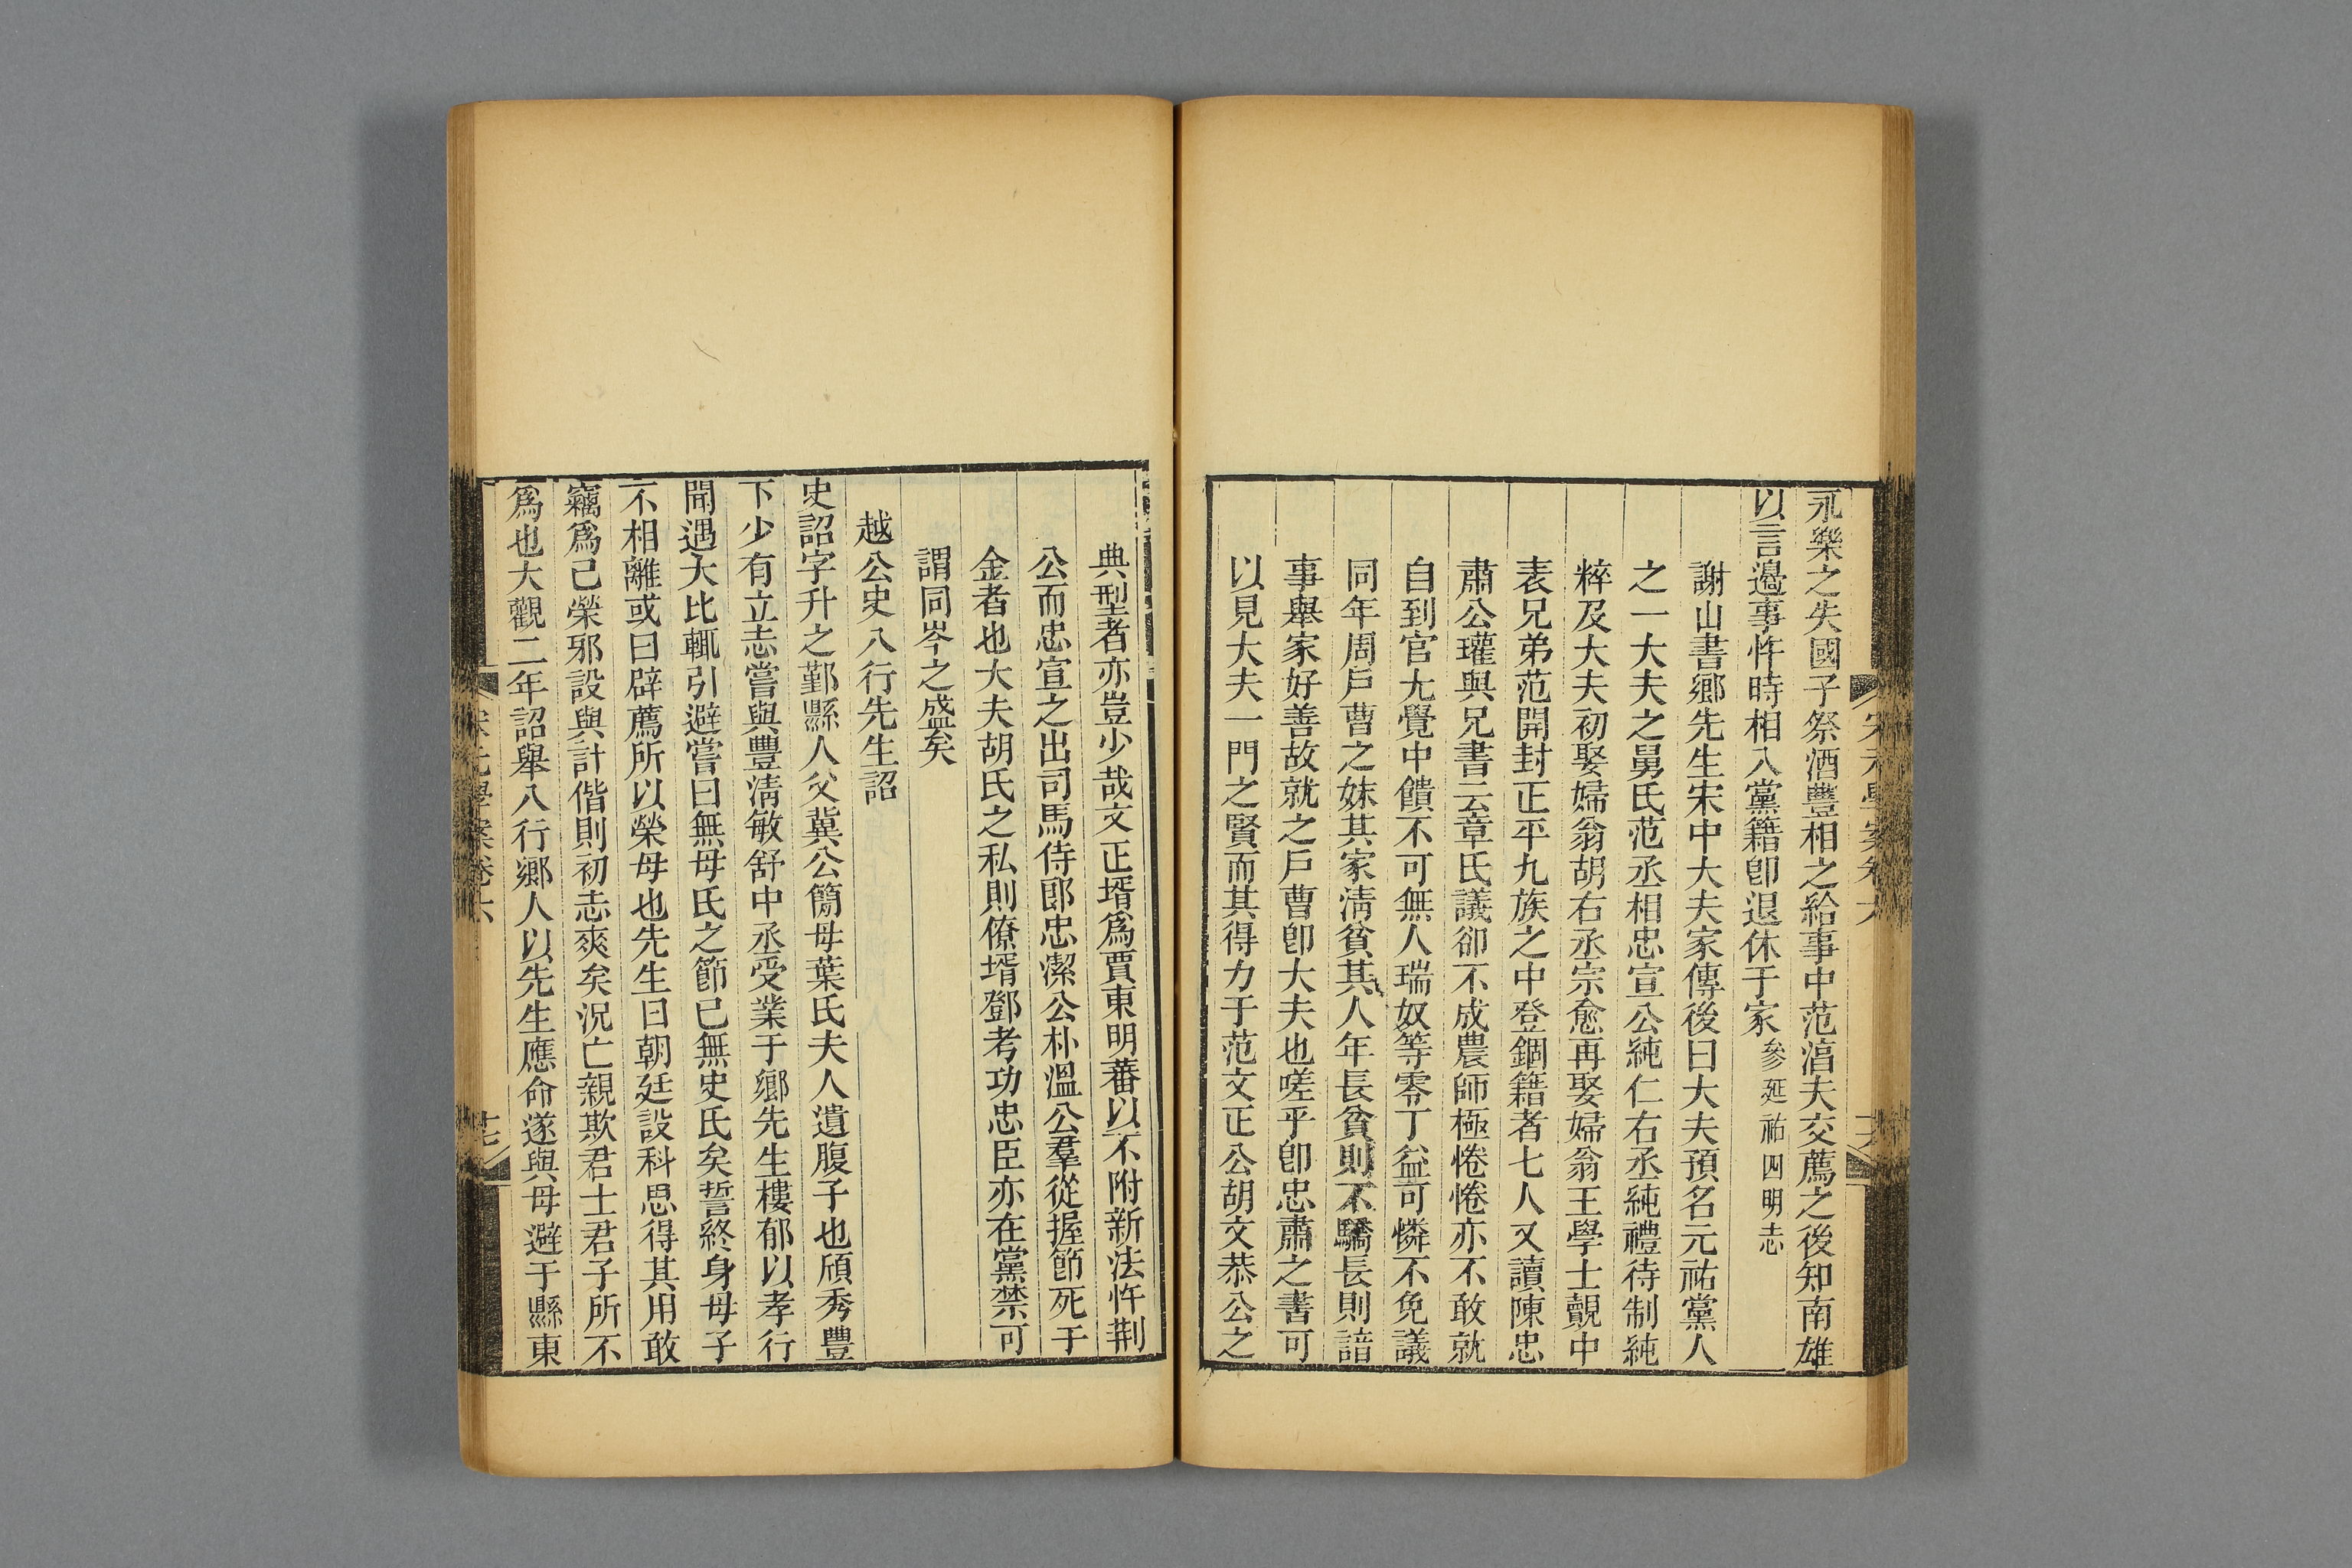 宋元學案卷六
十六
永樂之失國子祭酒豐相之給事中范淊夫交薦之後知南雄
以言邊事忤時相入黨籍卽退休于家參延祐四明志
謝山書鄉先生宋中大夫家傳後曰大夫預名元祐黨人
之一大夫之舅氏范丞相忠宣公純仁右丞純禮待制純
粹及大夫初娶婦翁胡右丞宗愈再娶婦翁王學士覿中
表兄弟范開封正平九族之中登錮籍者七人又讀陳忠
肅公瓘與兄書云章氏議卻不成農師極惓惓亦不敢就
自到官尢覺中饋不可無人瑞奴等零丁益可憐不免議
同年周戸曹之妹其家淸貧其人年長貧則不驕長則諳
事舉家好善故就之戸曹卽大夫也嗟乎卽忠肅之書可
以見大夫一門之賢而其得力于范文正公胡文恭公之
典型者亦豈少哉文正壻爲賈東明蕃以不附新法忤荆
公而忠宣之出司馬侍郎忠潔公朴溫公羣從握節死于
金者也大夫胡氏之私則僚壻鄧考功忠臣亦在黨禁可
謂同岑之盛矣
越公史八行先生詔
史詔字升之鄞縣人父冀公簡母葉氏夫人遺腹子也頎秀豐
下少有立志嘗與豐淸敏舒中丞受業于鄉先生樓郁以孝行
聞遇大比輒引避嘗曰無母氏之節已無史氏矣誓終身母子
不相離或曰辟薦所以榮母也先生曰朝廷設科思得其用敢
竊爲己榮邪設與計偕則初志爽矣況亡親欺君士君子所不
爲也大觀二年詔舉八行鄉人以先生應命遂與母避于縣東
宋元學案卷六
十七